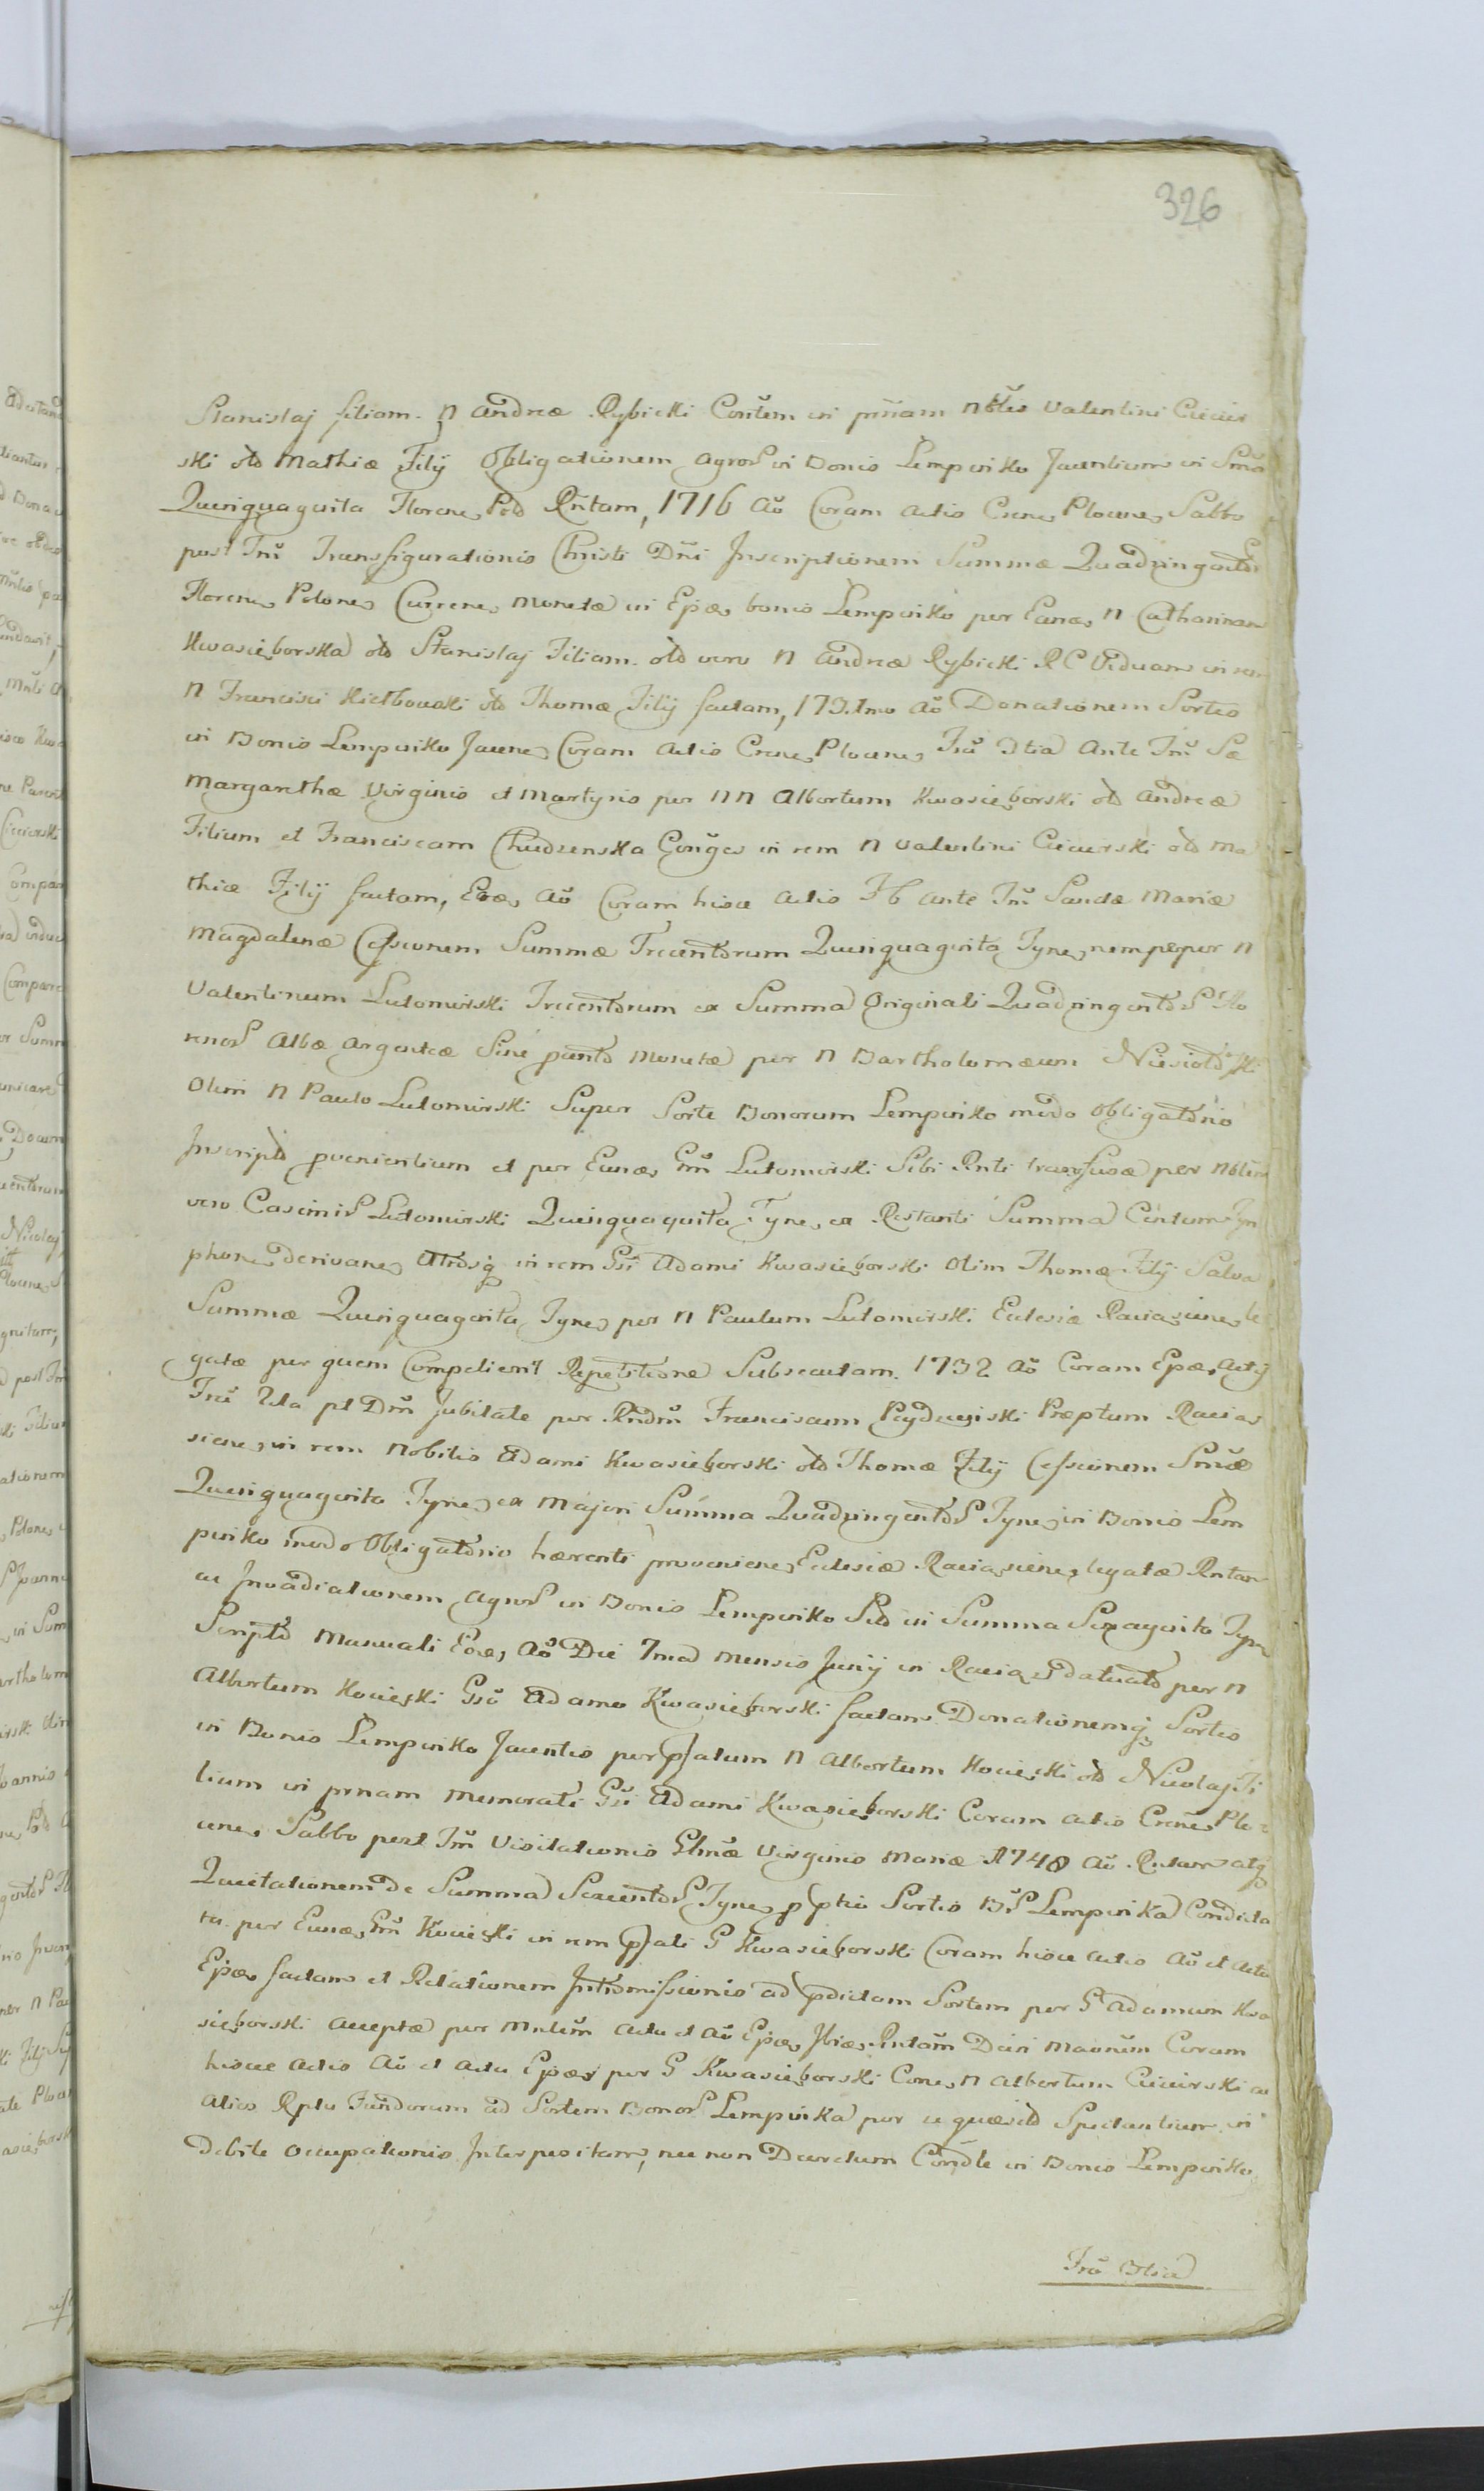 326
Stanislaj filiam. N Andreæ Rybicki Cont̃em in prñam Nbłis Valentini Cieciér
ski olo Mathiæ Filij Obligationem agror in Bonis Lempinko Jacentium in Sm̃a
Quinquaginta Florenₛ Pol Rñtam, 1716 Aõ Coram Actis Crenₛ Plocenₛ Sabbo
post Fm̃ Transfigurationis Christi Dñi Inscriptionem Summæ Quadringentor
Florenₛ Polonₛ Currenₛ Monetæ in Epæₛ bonis Lempinko per Eanₛ N Catharinam
Kwasięborska olo Stanislaj Filiam. olo vero N Andreæ Rybicki R C Viduam in rem
N Francisci Kiełbowski olo Thomæ Filij factam, 173.1mo Aõ Donationem Sortis
in Bonis Lempinko Jacenₛ Coram Actis Crenₛ Plocenₛ Frã 3tia Ante Fm̃ Sæ
Margarethæ Virginis et Martyris per NN Albertum Kwasięborski olo Andreæ
Filium et Franciscam Chudzenska Conjges in rem N Valentini Cieciérski olo Ma
thiæ Filij factam, Eoₛ Aõ Coram hisce Actis Fb ante Fm̃ Sanctæ Mariæ
Magdalenæ Cessionem Summæ Trecentorum Quinquaginta Tynₛ nempe per N
Valentinum Lutomirski Trecentorum ex Summa Originali Quadringentor Flo
renor Albæ Argenteæ Sine panto Monetæ per N Bartholomæum
Olim N Paulo Lutomirski Super Sorte Bonorum Lempinko modo Obligatorio
Inscripto pvenientium et per Eunₛ Gm̃ Lutomirski Sibi Rnti transfusæ per Nblem
vero Casimir Lutomirski Quinquaginta Tynₛ ex Restanti Summa Centum Tyn
phonₛ derivanₛ Atrosq̃ in rem Gsi Adami Kwasięborski Olim Thomæ Filij Salva
Summæ Quinquaginta Tynₛ per N Paulum Lutomirski Eclesiæ Raciąznenₛ le
gatæ per quem Competierit Repetitione Subsecutam. 1732 Aõ Coram Epæₛ Actij
Frã 2da pt Dm̃ Jubilate per Rndm̃ Franciscum Præptum Raciąz
nenₛ in rem Nobilis Adami Kwasięborski olo Thomæ Filij Cessionem Sm̃æ
Quinquaginta Tynₛ ex Majori Summa Quadringentor Tynₛ in Bonis Lem
pinko modo Obligatorio hærenti provenienₛ Eclesiæ Raciąznenₛ legatæ Rntam
ac Invadiationem Agror in Bonis Lempinko Sed in Summa Sexaginta Tynₛ
Scripto Manuali Eoₛ Aõ Die 7ma Mensis Junij in Raciąz datuato per N
Albertum Kocięski Gso Adamo Kwasięborski factam Donationemq̃ Sortis
in Bonis Lempinko Jacentis per pfatum N Albertum Kocięski olo Nicolaj Fi
lium in prnam Memorati Gsi Adami Kwasięborski Coram Actis Crenₛ Plo
cenₛ Sabbo post Fm̃ Visitationis Glmæ Virginis Mariæ 1748 Aõ Rntam atq̃
Quietationem de Summa Sexcentor Tynₛ p ptio Sortis Br̃ Lempinka Condicta
ta per Eunₛ Gm̃ Kocięski in rem pfati G Kwasięborski Coram hisce Actis Aõ et Actu
Epæₛ factam et Relationem Intromissionis ad pdictam Sortem per G Adamum Kwa
sięborski Acceptæ per Mnlem Actu et Aõ Epæₛ Coram
hisce Actis Aõ et Actu Epæₛ per G Kwasięborski Conₛ N Albertum Cieciérski ac
Alios Rptu Fundorum ad Sortem Bonor Lempinka per se quæsito Spectantium in
debite occupationis Interpositam, nec non Decretum Condle in Bonis Lempinko
Frã 3tia